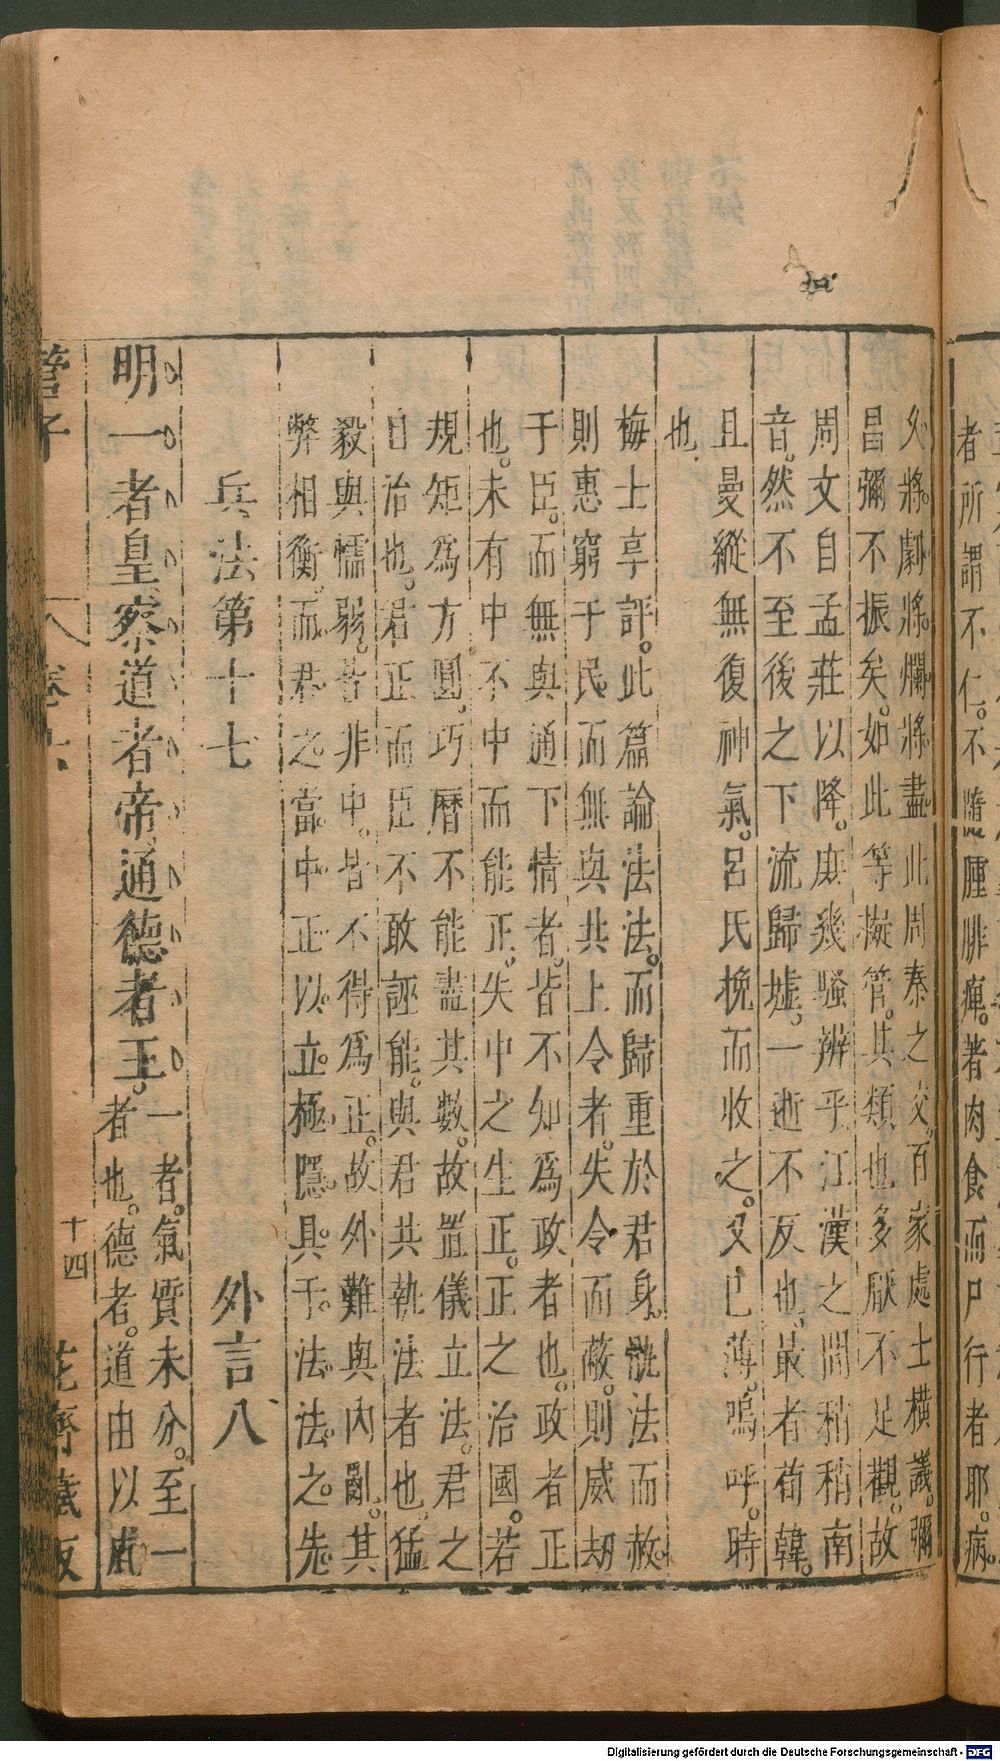 者所謂不仁。不隨腫腓痺。著肉食而尸行者耶。病。
久。將。劇。將。爛。將。盡。此周秦之交。百家處士橫議。彌
昌彌不振矣。如此等擬管。其類也多厭不足觀。故
周文自孟莊以降。庶幾騷辨乎江漢之間稍稍南
音。然不至後之下流歸墟。一逝不反也。最者荀韓。
且曼縱無復神氣。呂氏挽而收之。又已薄。嗚呼。時
也。
梅士享評。此篇論法法。而歸重於君身。謂法而赦。
則惠窮于民而無與共上令者。失令而蔽。則威劫
于臣。而無與通下情者。皆不知爲政者也。政者正
也。未有中不中而能正。失中之生正。正之治國。若
規矩爲方圓。巧曆不能盡其數。故置儀立法。君之
自治也。君正而臣不敢誣能。與君共執法者也。猛
毅與懦弱。皆非中。皆不得爲正。故外難與內亂。其
弊相衡。而君之當。中正以立極。隱具于法法之先。
兵法第十七 外言八
明一者皇察道者帝通德者王。一者。氣質未分。至一
者也。德者。道由以成
管子 卷六 十四 花齋藏板
Digitalisierung gefördert durch die Deutsche Forschungsgemeinschaft - DFG